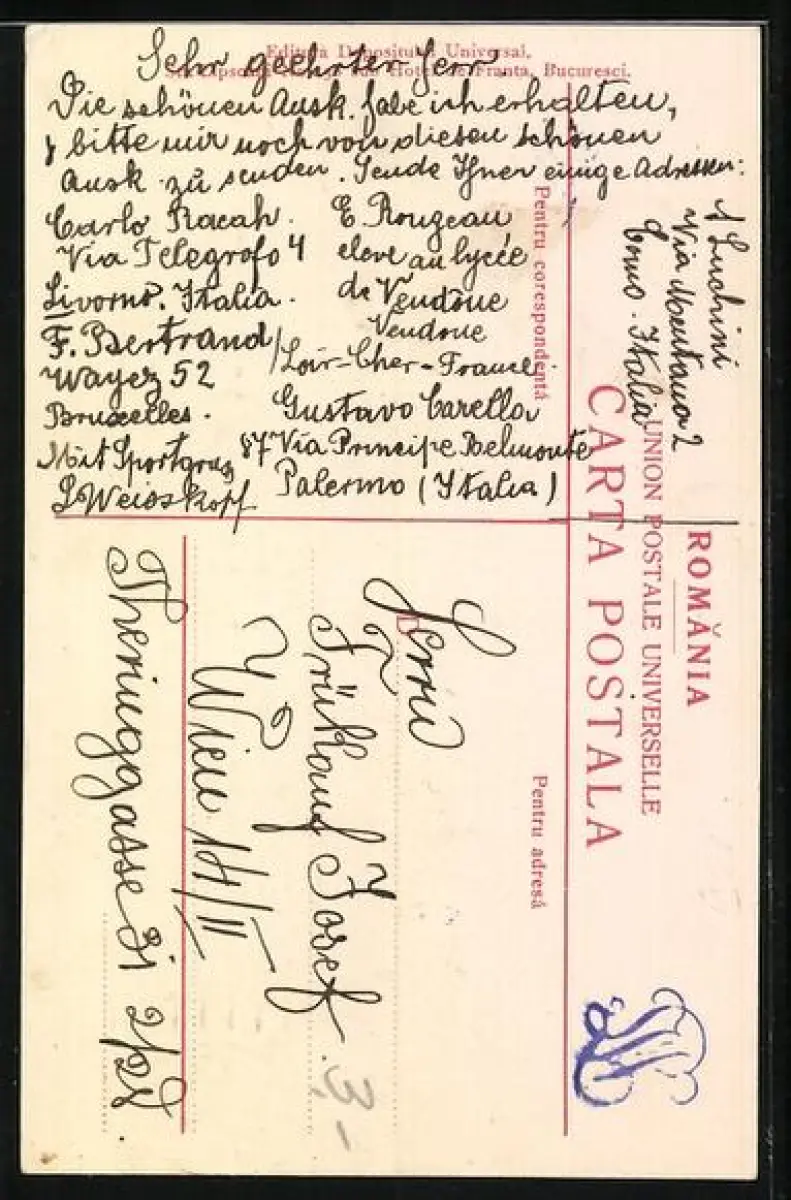 Editura Depositului Universal.
Hotel de Franta, Bucuresci.
Sehr geehrter Herr.
Die schönen Ansk. habe ich erhalten,
bitte mir noch von diesen schönen
Ansk. zu senden. Sende Ihnen einige Adressen:
Carlo Racah.
Via Telegrafo 4
Livorno. Italia.
F. Bertrand
Wayez 52
Bruxelles.
Mit Sportgruß
S. Weisskopf
E. Rougeau
eleve au lycée
de Vendôme
Vendome
Loir-Cher-France.
Gustavo Carella
87 Via Principe Belmonte
Palermo (Italia)
Luchini
Via Mentana 2
Como. Italia
ROMĂNIA
UNION POSTALE UNIVERSELLE
CARTA POSTALA
Pentru corespondentă
Pentru adresă
Herrn
Josef
Wien
3.-